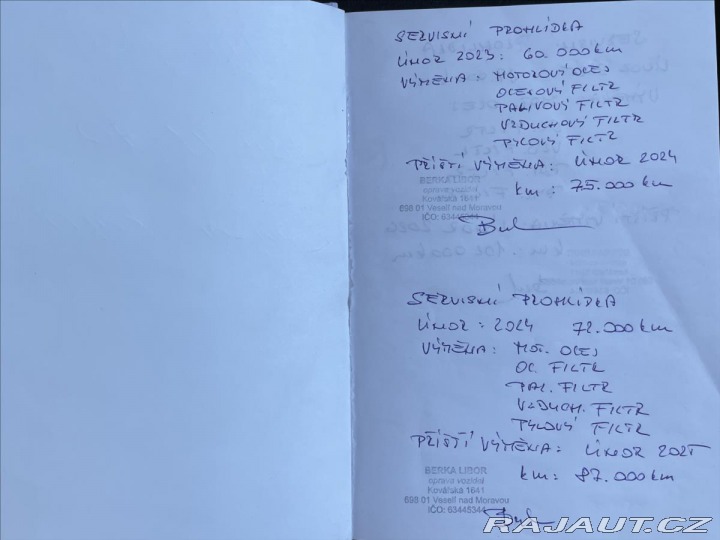 SERVISNÍ PROHLÍDKA
ÚNOR 2023: 60.000 km
VÝMĚNA: MOTOROVÝ OLEJ
OLEJOVÝ FILTR
PALIVOVÝ FILTR
VZDUCHOVÝ FILTR
PYLOVÝ FILTR
PŘÍŠTÍ VÝMĚNA: ÚNOR 2024
km: 75.000 km
BERKA LIBOR
oprava vozidel
Kovářská 1641
698 01 Veselí nad Moravou
IČO: 63445344
SERVISNÍ PROHLÍDKA
ÚNOR: 2024 72.000 km
VÝMĚNA: MOT. OLEJ
OL. FILTR
PAL. FILTR
VZDUCH. FILTR
PYLOVÝ FILTR
PŘÍŠTÍ VÝMĚNA: ÚNOR 2025
km: 87.000 km
BERKA LIBOR
oprava vozidel
Kovářská 1641
698 01 Veselí nad Moravou
IČO: 63445344
RAJAUT.CZ